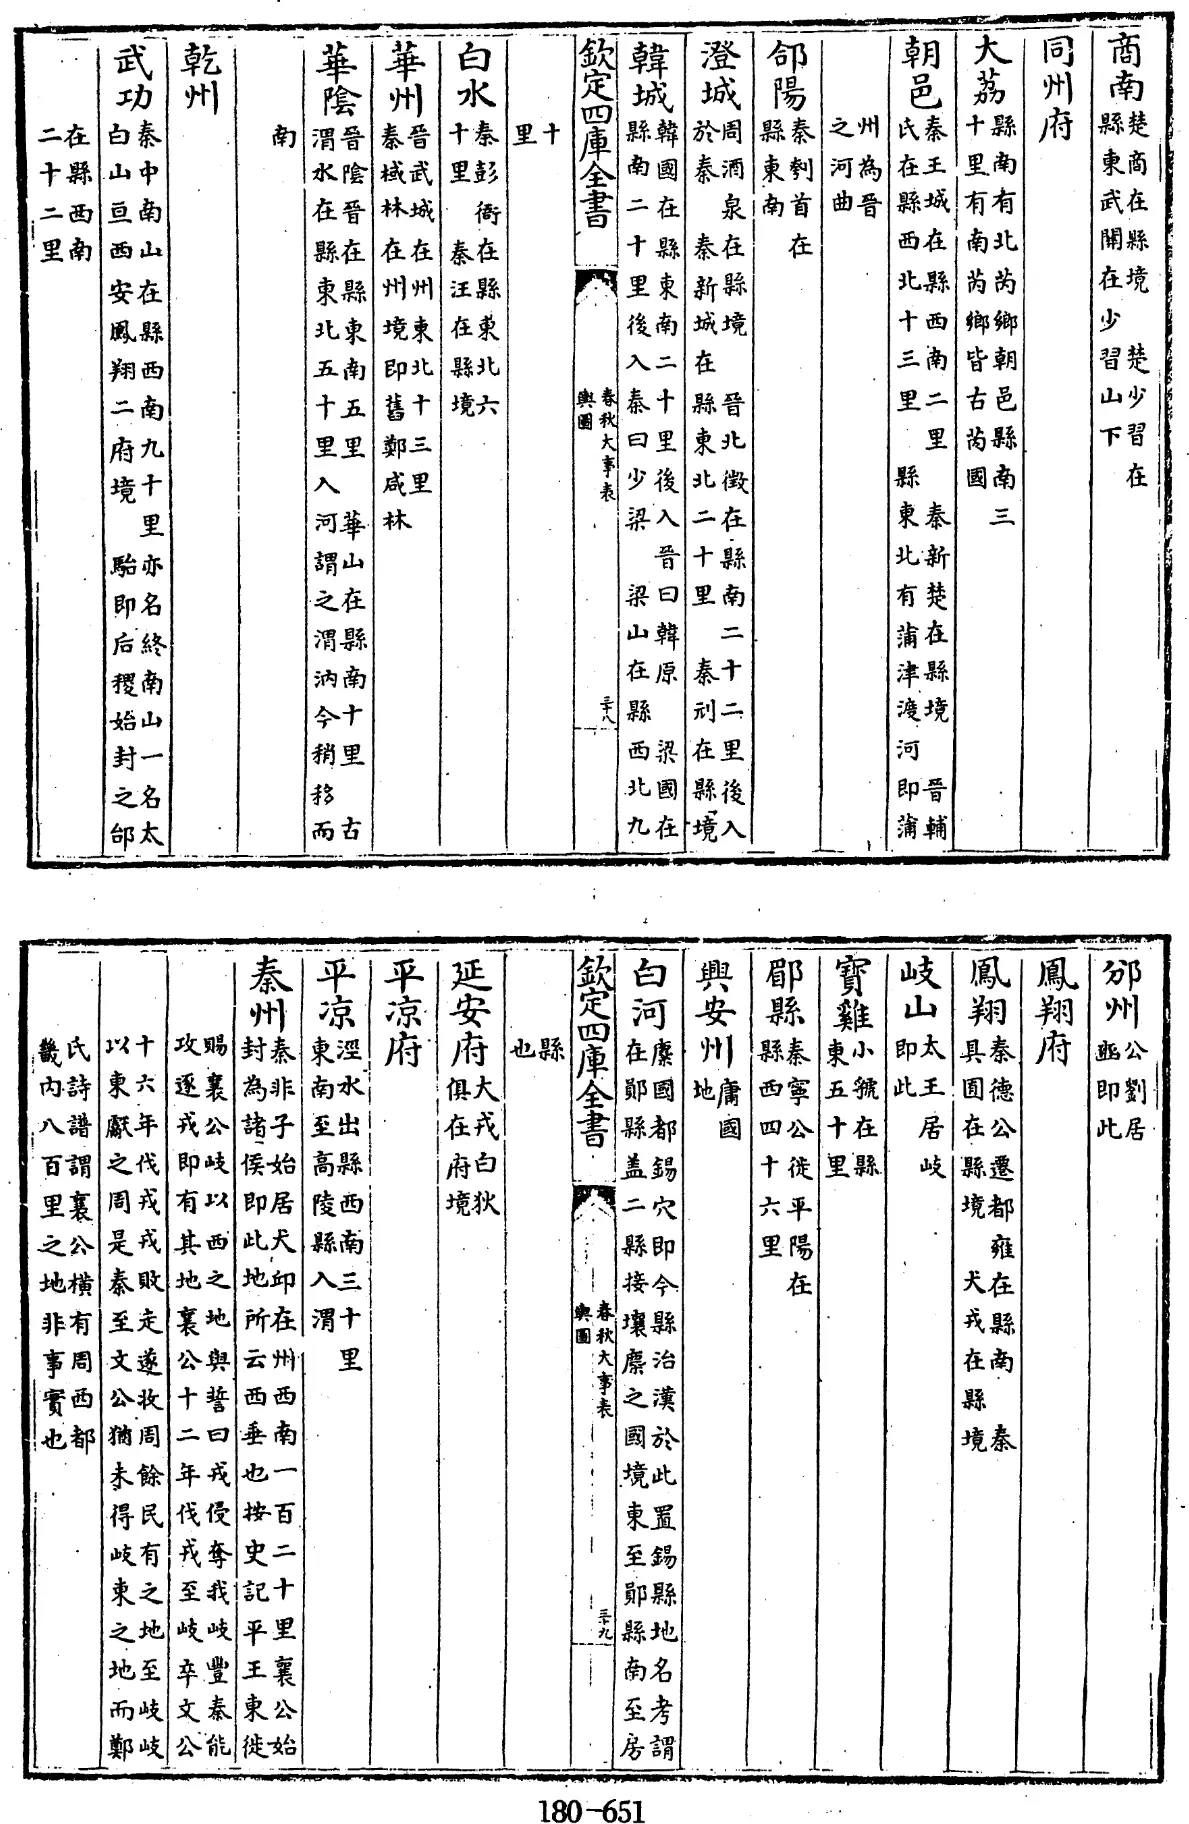 商南
楚商在縣境 楚少習在
縣東武關在少習山下
同州府
大荔
縣南有北芮鄉朝邑縣南三
十里有南芮鄉皆古芮國
朝邑
秦王城在縣西南二里 秦新楚在縣境 晉輔
氏在縣西北十三里 縣東北有蒲津渡河即蒲
州為晉
之河曲
郃陽
秦刳首在
縣東南
澄城
周酒泉在縣境 晉北徵在縣南二十二里後入
於秦 秦新城在縣東北二十里 秦刓在縣境
韓城
韓國在縣東南二十里後入晉曰韓原 梁國在
縣南二十里後入秦曰少梁 梁山在縣西北九
欽定四庫全書
春秋大事表
輿圖
三十八
十
里
白水
秦彭衙在縣東北六
十里 秦汪在縣境
華州
晉武城在州東北十三里
秦棫林在州境即舊鄭咸林
華陰
晉陰晉在縣東南五里 華山在縣南十里 古
渭水在縣東北五十里入河謂之渭汭今稍移而
南
乾州
武功
秦中南山在縣西南九十里亦名終南山一名太
白山亘西安鳳翔二府境 駘即后稷始封之邰
在縣西南
二十二里
邠州
公劉居
豳即此
鳳翔府
鳳翔
秦德公遷都雍在縣南 秦
具囿在縣境 犬戎在縣境
岐山
太王居岐
即此
寶雞
小虢在縣
東五十里
郿縣
秦寧公徙平陽在
縣西四十六里
興安州
庸國
地
白河
麇國都錫穴即今縣治漢於此置錫縣地名考謂
在鄖縣盖二縣接壤麇之國境東至鄖縣南至房
欽定四庫全書
春秋大事表
輿圖
三十九
縣
也
延安府
大戎白狄
俱在府境
平凉府
平凉
涇水出縣西南三十里
東南至高陵縣入渭
秦州
秦非子始居犬邱在州西南一百二十里襄公始
封為諸侯即此地所云西垂也按史記平王東徙
賜襄公岐以西之地與誓曰戎侵奪我岐豐秦能
攻逐戎即有其地襄公十二年伐戎至岐卒文公
十六年伐戎戎敗走遂收周餘民有之地至岐岐
以東獻之周是秦至文公猶未得岐東之地而鄭
氏詩譜謂襄公横有周西都
畿内八百里之地非事實也
180-651